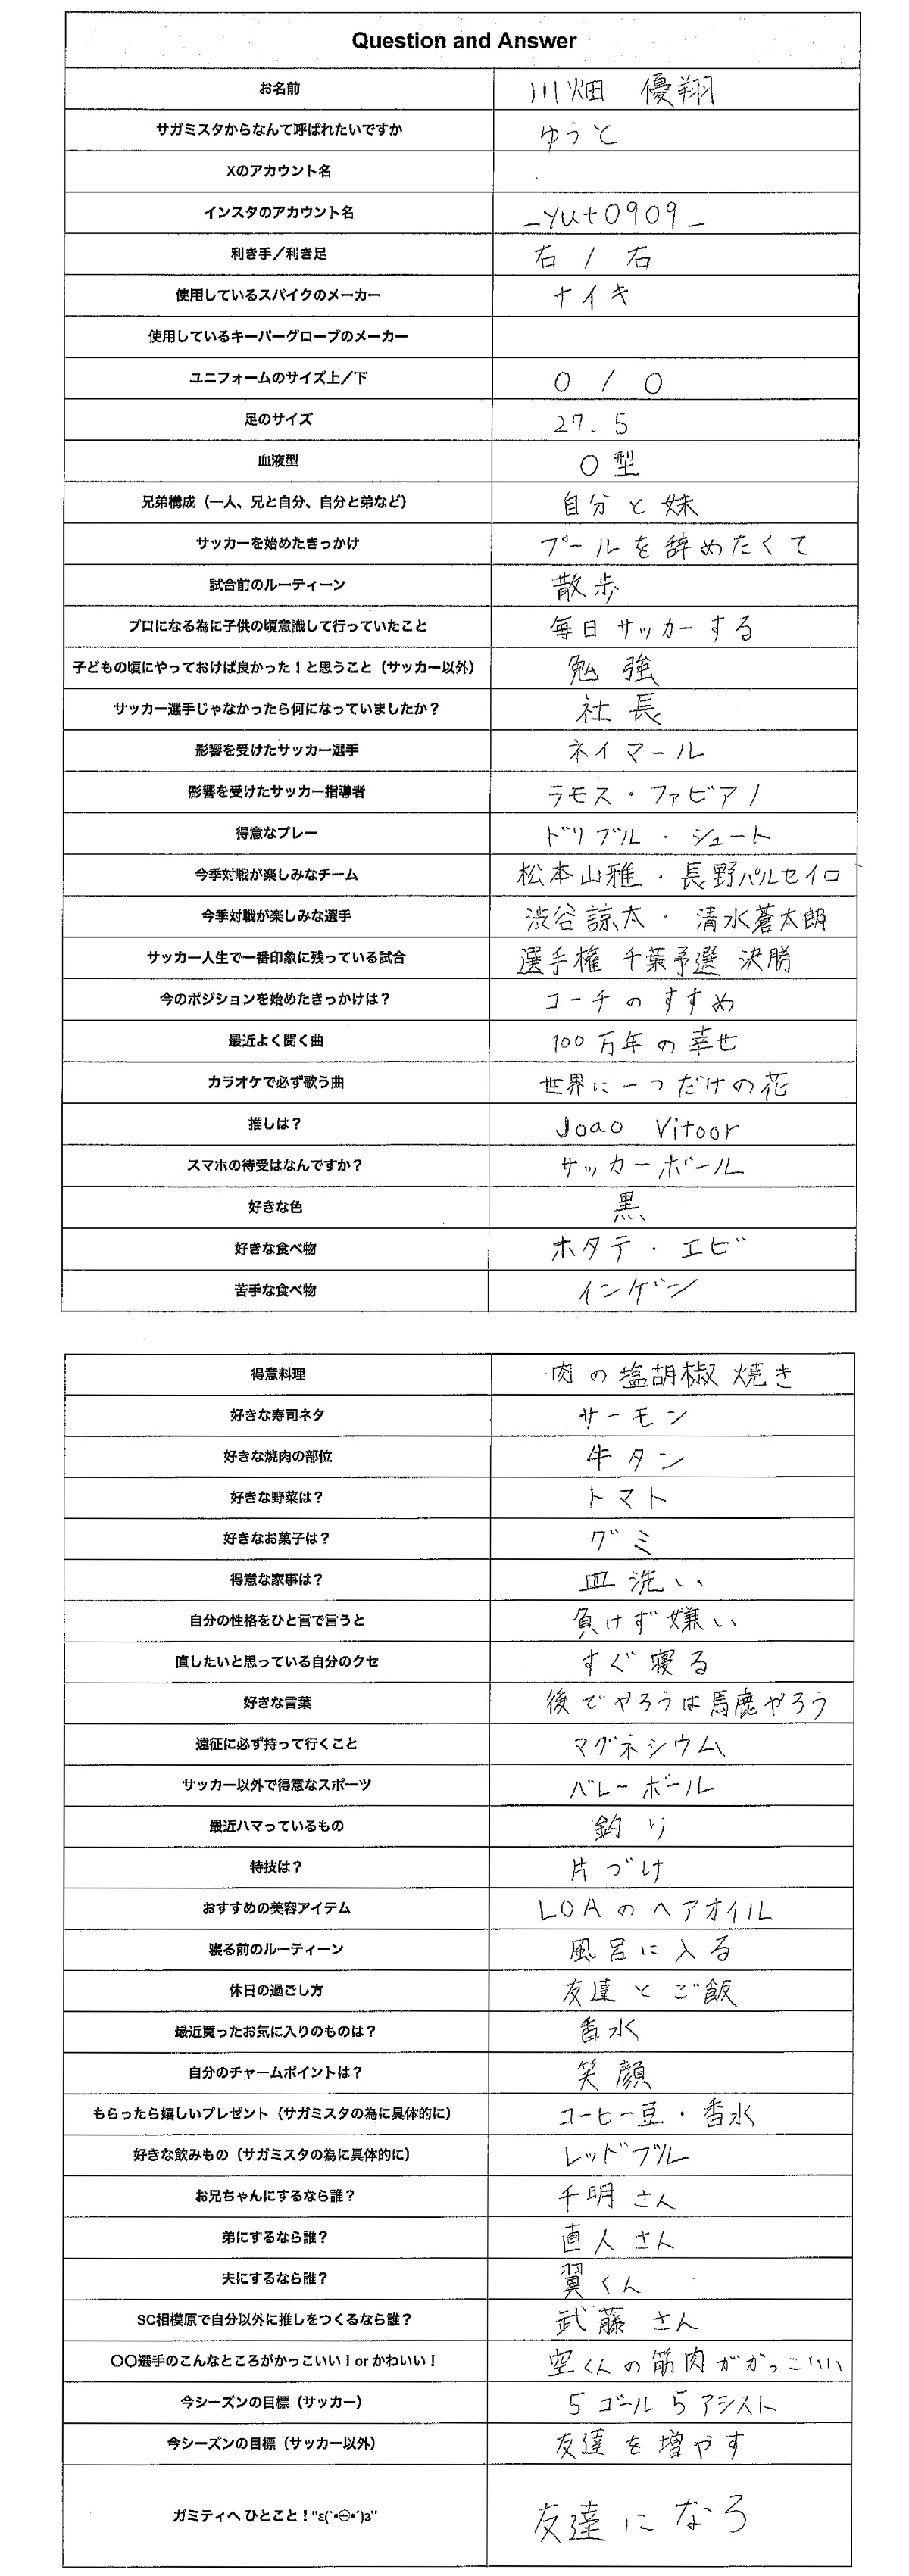 Question and Answer
お名前 川畑 優翔
サガミスタからなんて呼ばれたいですか ゆうと
Xのアカウント名
インスタのアカウント名 _yut0909_
利き手／利き足 右 / 右
使用しているスパイクのメーカー ナイキ
使用しているキーパーグローブのメーカー
ユニフォームのサイズ上／下 O / O
足のサイズ 27.5
血液型 O型
兄弟構成（一人、兄と自分、自分と弟など） 自分と妹
サッカーを始めたきっかけ プールを辞めたくて
試合前のルーティーン 散歩
プロになる為に子供の頃意識して行っていたこと 毎日サッカーする
子どもの頃にやっておけば良かった！と思うこと（サッカー以外） 勉強
サッカー選手じゃなかったら何になっていましたか？ 社長
影響を受けたサッカー選手 ネイマール
影響を受けたサッカー指導者 ラモス・ファビアノ
得意なプレー ドリブル・シュート
今季対戦が楽しみなチーム 松本山雅・長野パルセイロ
今季対戦が楽しみな選手 渋谷諒太・清水蒼太朗
サッカー人生で一番印象に残っている試合 選手権 千葉予選 決勝
今のポジションを始めたきっかけは？ コーチのすすめ
最近よく聞く曲 100万年の幸せ
カラオケで必ず歌う曲 世界に一つだけの花
推しは？ Joao Vitoor
スマホの待受はなんですか？ サッカーボール
好きな色 黒
好きな食べ物 ホタテ・エビ
苦手な食べ物 インゲン
得意料理 肉の塩胡椒焼き
好きな寿司ネタ サーモン
好きな焼肉の部位 牛タン
好きな野菜は？ トマト
好きなお菓子は？ グミ
得意な家事は？ 皿洗い
自分の性格をひと言で言うと 負けず嫌い
直したいと思っている自分のクセ すぐ寝る
好きな言葉 後でやろうは馬鹿やろう
遠征に必ず持って行くこと マグネシウム
サッカー以外で得意なスポーツ バレーボール
最近ハマっているもの 釣り
特技は？ 片づけ
おすすめの美容アイテム LOAのヘアオイル
寝る前のルーティーン 風呂に入る
休日の過ごし方 友達とご飯
最近買ったお気に入りのものは？ 香水
自分のチャームポイントは？ 笑顔
もらったら嬉しいプレゼント（サガミスタの為に具体的に） コーヒー豆・香水
好きな飲みもの（サガミスタの為に具体的に） レッドブル
お兄ちゃんにするなら誰？ 千明さん
弟にするなら誰？ 直人さん
夫にするなら誰？ 翼くん
SC相模原で自分以外に推しをつくるなら誰？ 武藤さん
〇〇選手のこんなところがかっこいい！or かわいい！ 空くんの筋肉がかっこいい
今シーズンの目標（サッカー） 5ゴール5アシスト
今シーズンの目標（サッカー以外） 友達を増やす
ガミティへ ひとこと！"ε(´•㉨•`)з" 友達になろ